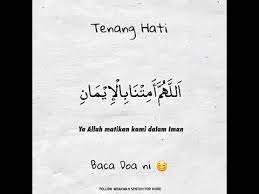 Tenang Hati
اَللّٰهُمَّ أَمِتْنَا بِالْإِيْمَانِ
Ya Allah matikan kami dalam Iman
Baca Doa ni 😊